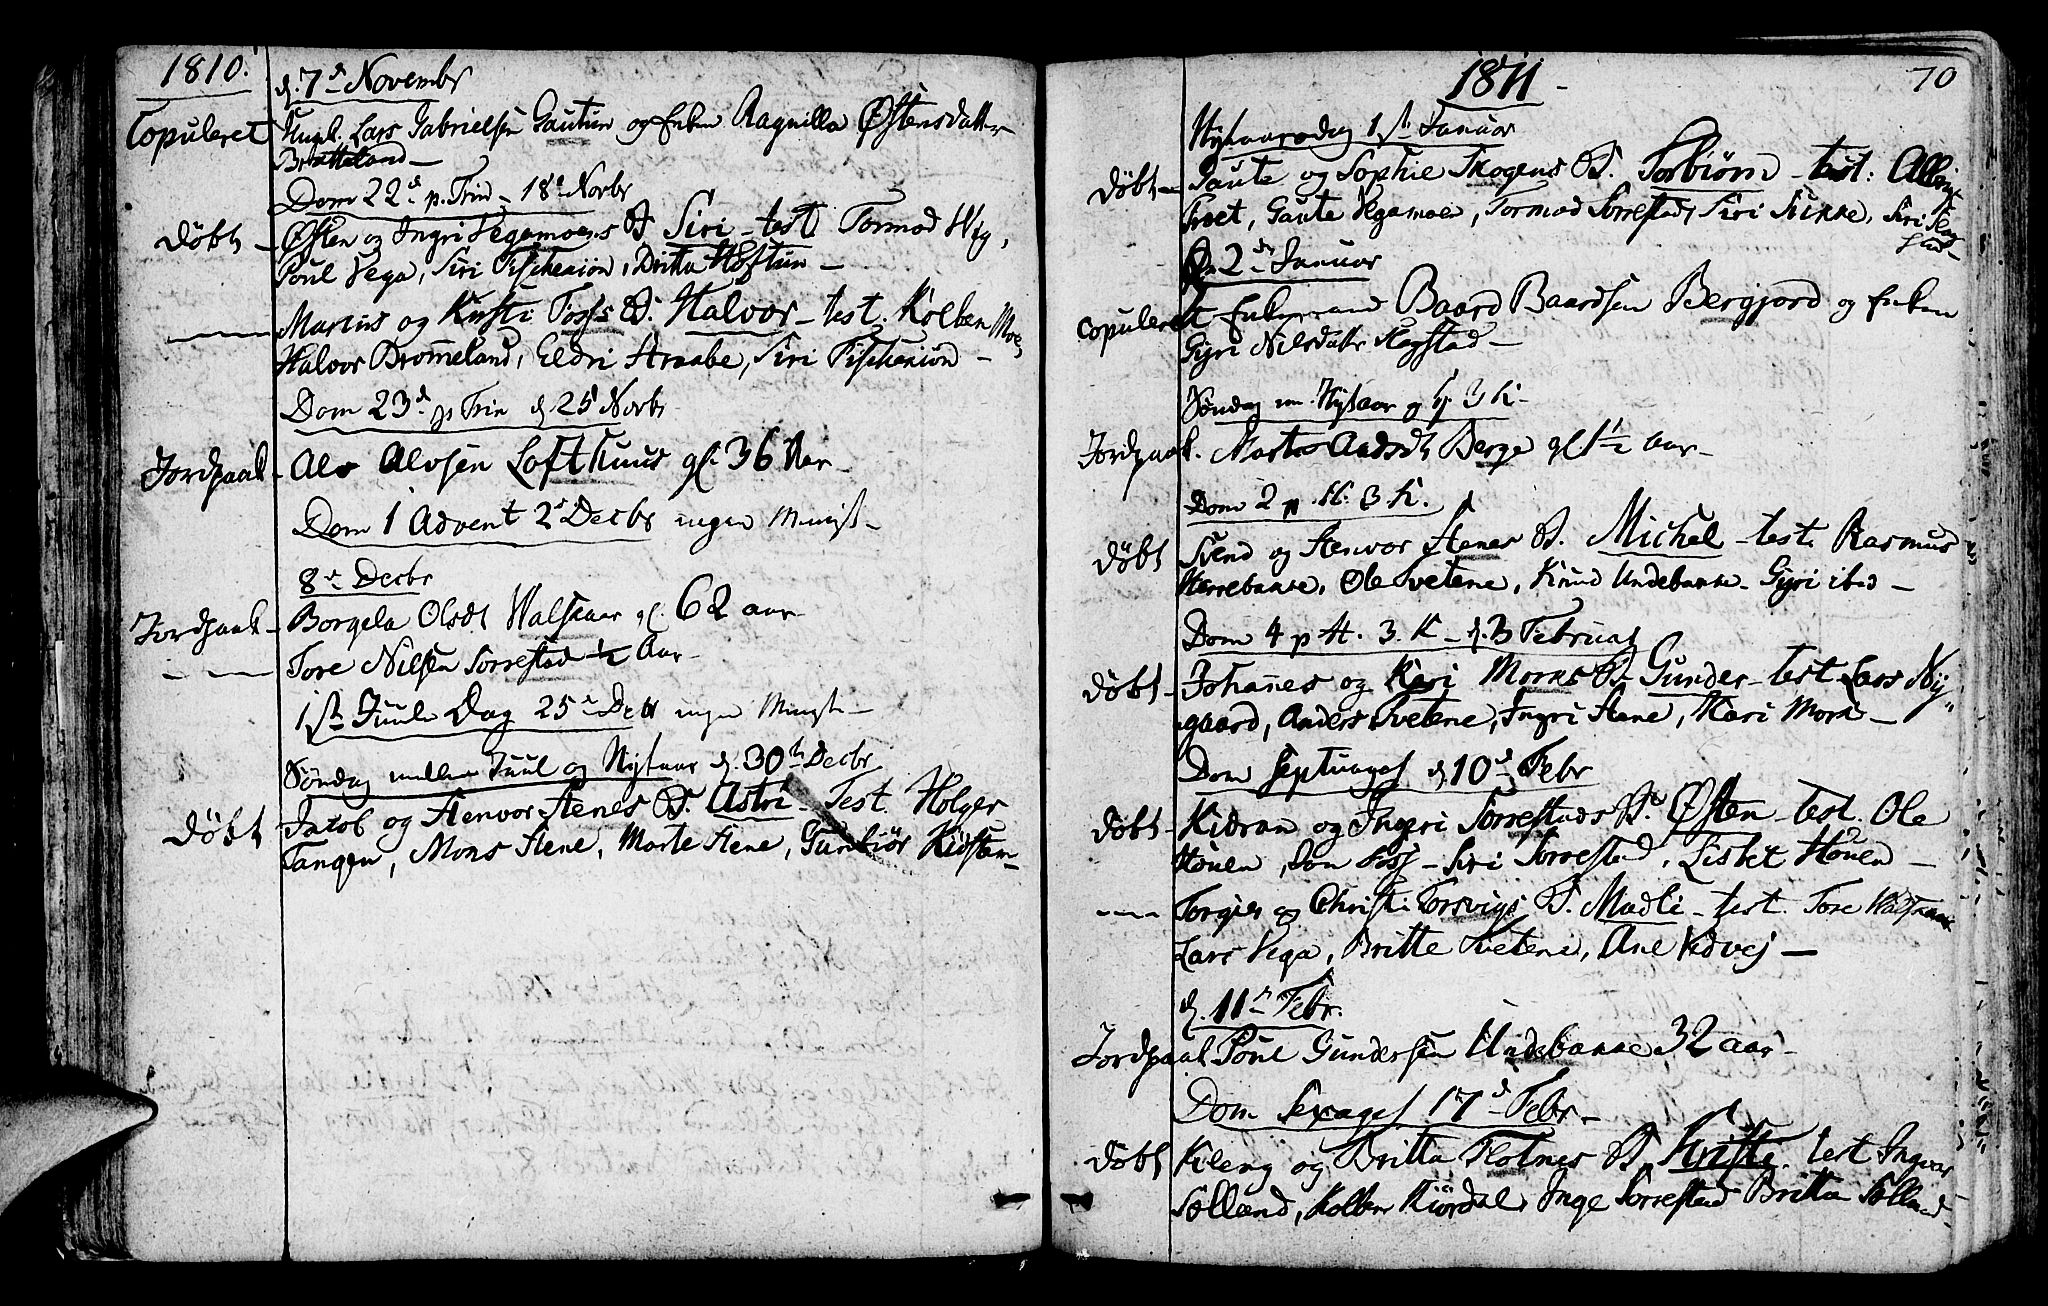 1810.
d. 7de Novembr
Copuleret Ungk. Lars Gabrielsen Gautun og Enken Ragnilla Østensdatter
Bratteland —
Dom 22de p. Trin – 18de Novbr
Døbt – Østen og Ingri Vegamoens B. Siri – test Tormod Veg,
Poul Vega, Siri Britta Høftun —
—— Marcus og Kirsti Foss B. Halvor – test. Kolben Moe
Halvor Brommeland, Eldri Straabe, Siri —
Dom 23de p Trin d. 25 Novbr
Jordpaak – Alv Alvsen Lofthuus gl. 36 Aar –
Dom 1 Advent 2de Decbr ingen Minist –
8de Decbr
Jordpaak – Borgela Olsdt Walskaar gl. 62 aar –
— — Tore Nilsen Sorrestad ½ Aar –
1ste Juule Dag 25de Decbr ingen Minist –
Søndag mellem Juul og Nytaar d. 30te Decbr
Døbt Jacob og Stenvor Stenes B. Astri – Test. Holger
Tangen, Mons Stene, Marte Stene, Gunbiør Kidstam –
1811 –
70
Nytaarsdag 1ste Januar
Døbt – Gaute og Sophie Skogens B. Torbiørn – test: 
Tveet, Gaute Vegamoe, Tormod Sorrestad, Siri Siri Hag
stad –
D. 2den Januar
Copuleret Enkemand Baard Baardsen Bergjord og Enken
Gyri Nilsdattr Hagstad –
Søndag m. Nytaar og h. 3 K –
Jordpaak. Marte Berge gl. 1½ Aar –
Dom 2 p. H. 3 K.
Døbt Svend og Stenvor Stenes B. Michel – test. Rasmus
Herrebakke, Ole Tvetene, Knud Undebakke – Gyri ibid –
Dom 4 p H. 3. K – d. 3 Februar
Døbt – Johannes og Kari Morks B. Gunder – test Lars Ny
gaard, Anders Tvetene, Ingri Stene, Kari Mork –
Dom Septuages d. 10de Febr
Døbt – Kidran og Ingri Sorrestads B. Østen – test. Ole
Houen, Jon Foss – Siri Sorrestad, Lisbet Houen –
—— Torgier og Christi Torsvigs B. Madli – test. Tore Walskaar
Lars Vega, Britte Tvetene, Ane Kidvej —
d. 11te Febr.
Jordpaak. Poul Gundersen Undebakke, 32 aar –
Dom Sexages 17de Febr –
Døbt Kileng og Britta Flotnes B. Kriste. test Ingvar
Sølland, Kolben Kiørdal, Inge Sorrestad Britta Sølland –